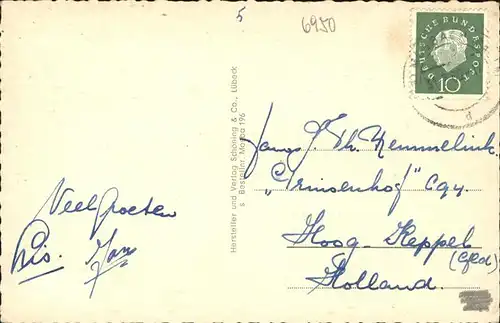 5
6950
DEUTSCHE BUNDESPOST
10
Hersteller und Verlag Schöning & Co., Lübeck
s Bestellnr. Morba 196
Veel groeten
J. Th. Remmelink.
"Prinsenhof"
Hoog-Keppel
(Geld)
Holland.